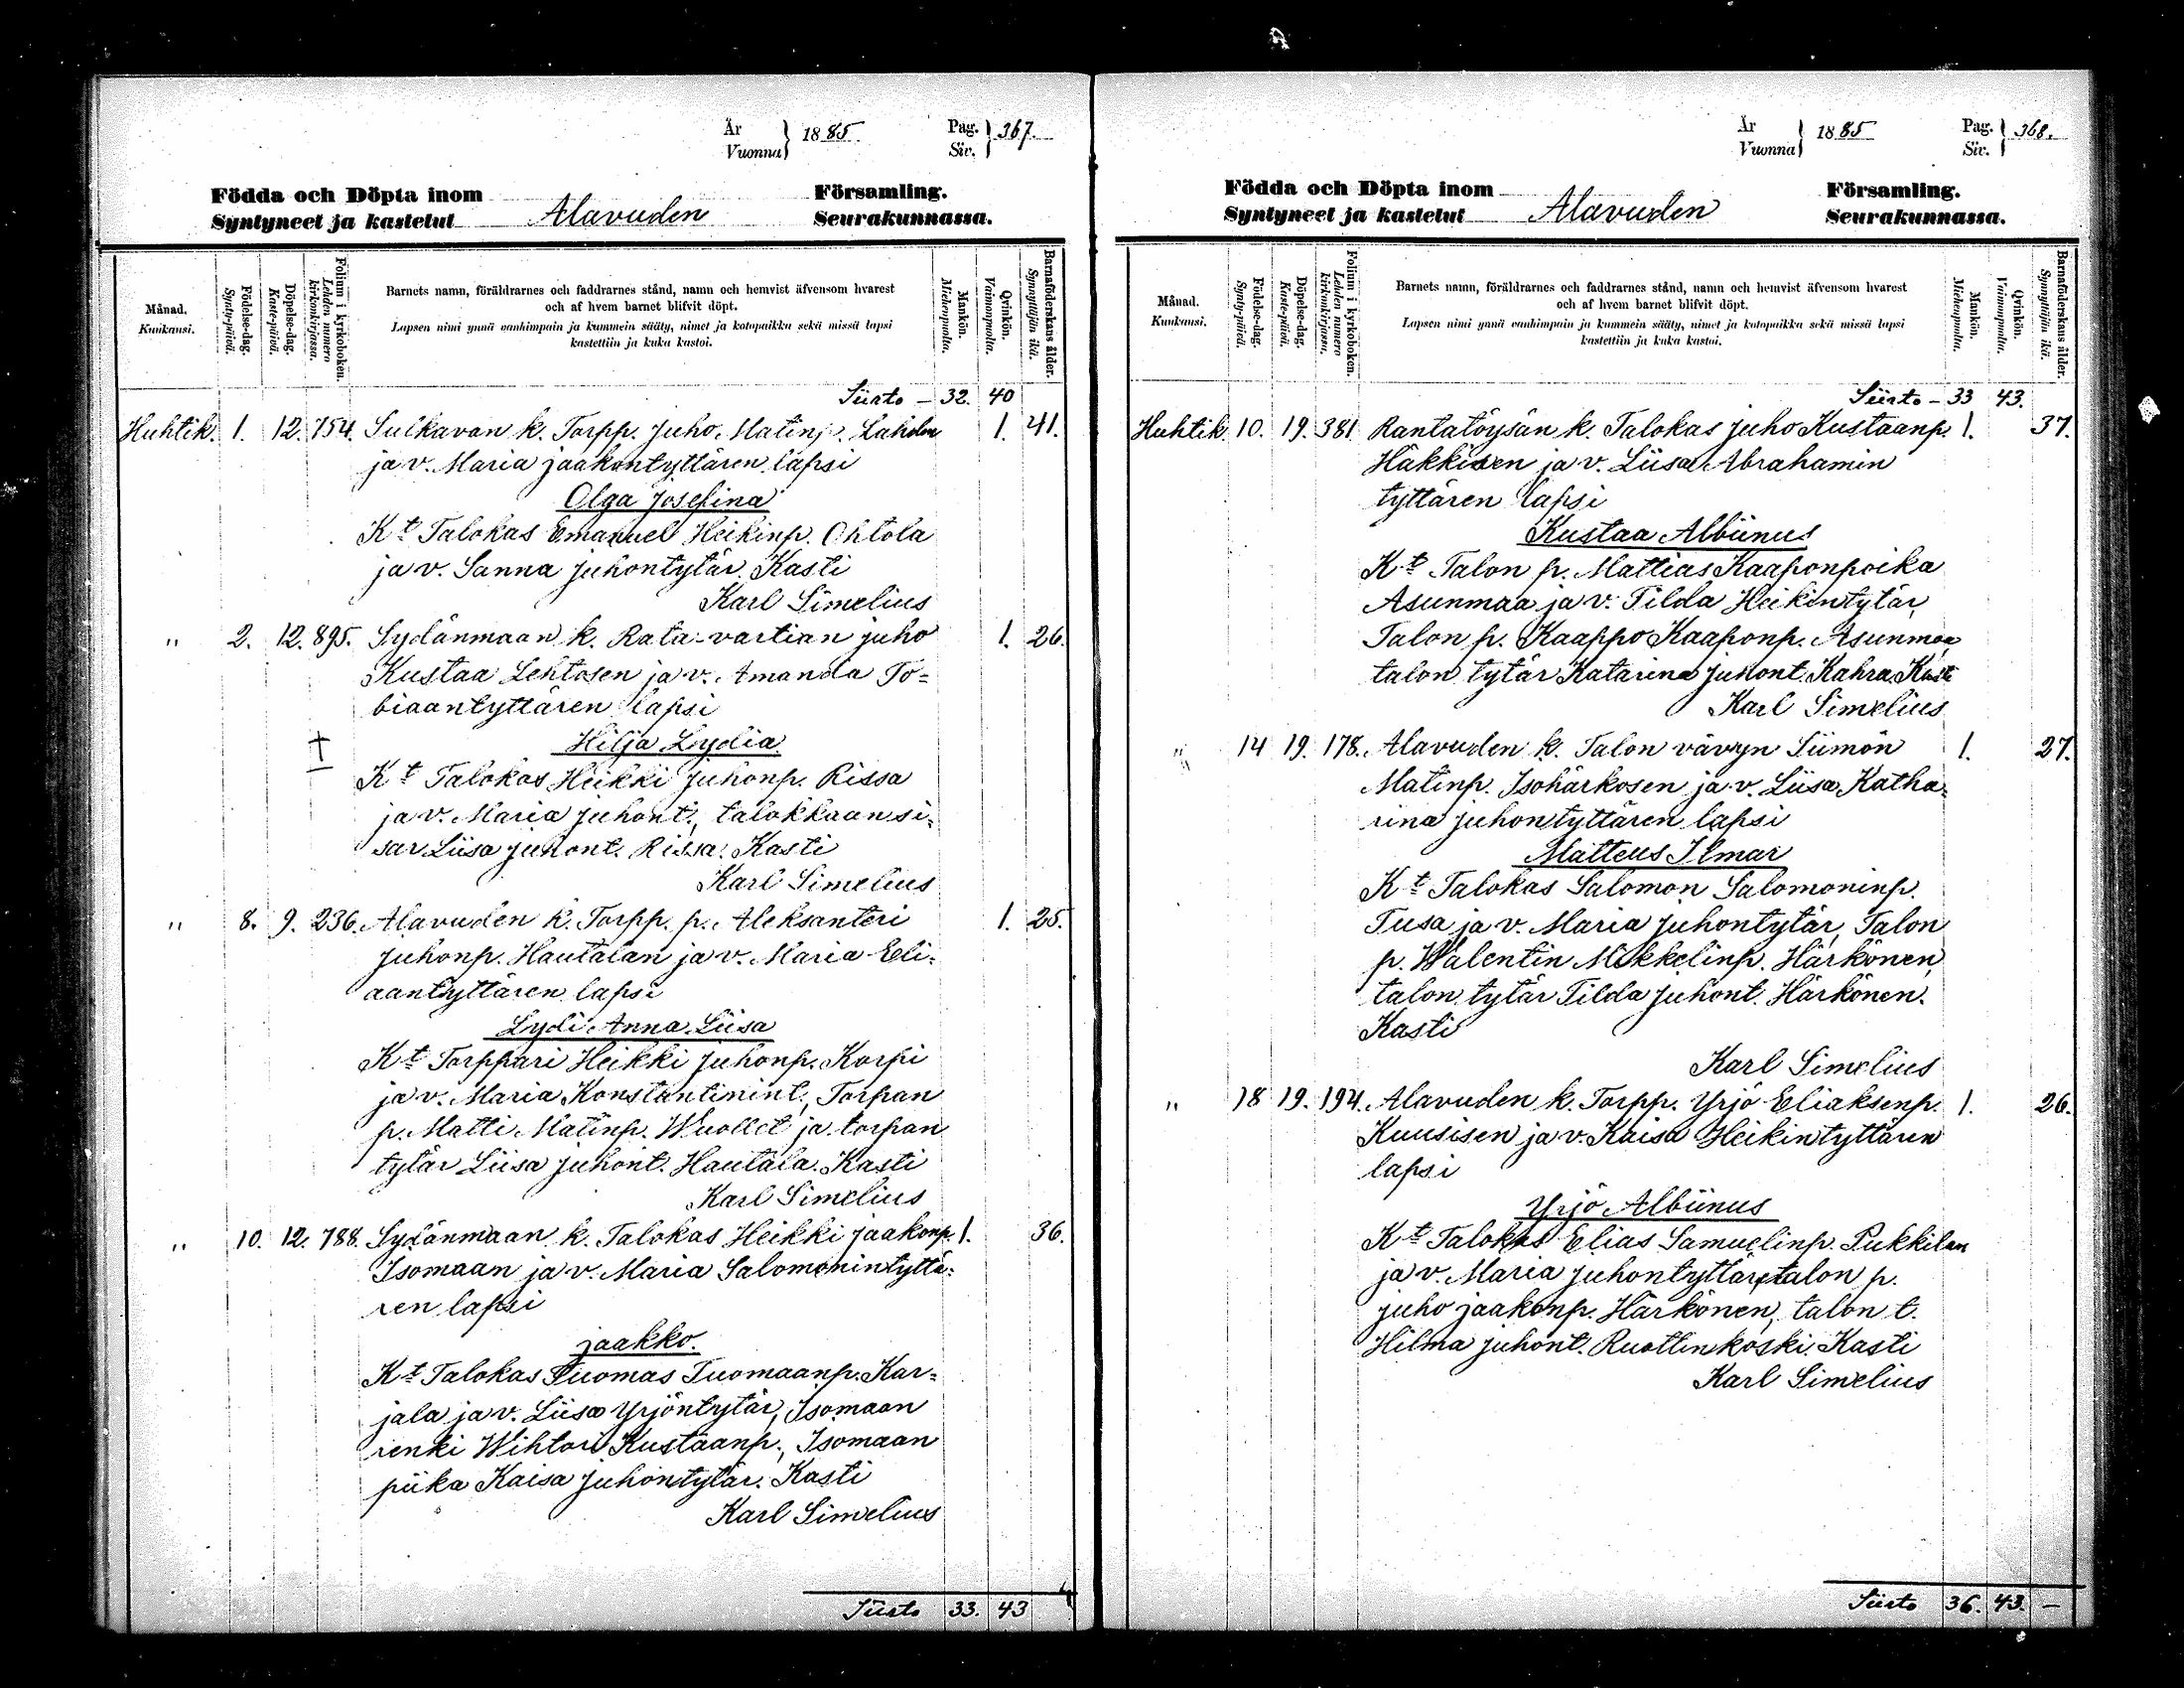 År Vuonna } 1885. Pag. Siv. } 367.
Födda och Döpta inom Församling.
Syntyneet ja kastetut Alavuden Seurakunnassa.
Månad. Kuukausi.
Födelse-dag. Synty-päivä.
Döpelse-dag. Kaste-päivä.
Folium i kyrkoboken. Lehden numero kirkonkirjassa.
Barnets namn, föräldrarnes och faddrarnes stånd, namn och hemvist äfvensom hvarest
och af hvem barnet blifvit döpt.
Lapsen nimi ynnä vanhimpain ja kummein sääty, nimet ja kotopaikka sekä missä lapsi
kastettiin ja kuka kastoi.
Mankön. Miehenpuolta.
Qvinkön. Vaimonpuolta.
Barnaföderskans ålder. Synnyttäjän ikä.
Siirto - 32. 40
Huhtik. 1. 12. 754. Sulkavan k. Torpp. Juho Matinp. Lahden 1. 41.
ja v. Maria Jaakontyttären lapsi
Olga Josefina
Kt Talokas Emanuel Heikinp. Ohtola
ja v. Sanna Juhontytär. Kasti
Karl Simelius
" 2. 12. 895. Sydänmaan k. Rata-vartian Juho 1. 26.
Kustaa Lehtosen ja v. Amanda To=
biaantyttären lapsi
† Hilja Lydia
Kt Talokas Heikki Juhonp. Rissa
ja v. Maria Juhont., talokkaan si=
sar Liisa Juhont. Rissa. Kasti
Karl Simelius
" 8. 9. 236. Alavuden k. Torpp. p. Aleksanteri 1. 25.
Juhonp. Hautalan ja v. Maria Eli=
aantyttären lapsi
Lydi Anna Liisa
Kt Torppari Heikki Juhonp. Korpi
ja v. Maria Konstantinint., Torpan
p. Matti Matinp. Wuollet ja torpan
tytär Liisa Juhont. Hautala. Kasti
Karl Simelius
" 10. 12. 788. Sydänmaan k. Talokas Heikki Jaakonp. 1. 36.
Isomaan ja v. Maria Salomonintyttä=
ren lapsi
Jaakko.
Kt Talokas Tuomas Tuomaanp. Kar=
jala ja v. Liisa Yrjöntytär, Isomaan
renki Wihtori Kustaanp., Isomaan
piika Kaisa Juhontytär. Kasti
Karl Simelius
Siirto 33. 43
År Vuonna } 1885 Pag. Siv. } 368.
Födda och Döpta inom Församling.
Syntyneet ja kastetut Alavuden Seurakunnassa.
Månad. Kuukausi.
Födelse-dag. Synty-päivä.
Döpelse-dag. Kaste-päivä.
Folium i kyrkoboken. Lehden numero kirkonkirjassa.
Barnets namn, föräldrarnes och faddrarnes stånd, namn och hemvist äfvensom hvarest
och af hvem barnet blifvit döpt.
Lapsen nimi ynnä vanhimpain ja kummein sääty, nimet ja kotopaikka sekä missä lapsi
kastettiin ja kuka kastoi.
Mankön. Miehenpuolta.
Qvinkön. Vaimonpuolta.
Barnaföderskans ålder. Synnyttäjän ikä.
Siirto - 33 43.
Huhtik 10. 19. 381 Rantatöysän k. Talokas Juho Kustaanp. 1. 37.
Häkkisen ja v. Liisa Abrahamin
tyttären lapsi
Kustaa Albiinus
Kt Talon p. Mattias Kaaponpoika
Asunmaa ja v. Tilda Heikintytär,
Talon p. Kaappo Kaaponp. Asunmaa,
talon tytär Katarina Juhont. Kahra. Kasti
Karl Simelius
" 14 19. 178. Alavuden k. Talon vävyn Siimon 1. 27.
Matinp. Isohärkosen ja v. Liisa Katha=
rina Juhontyttären lapsi
Matteus Ilmar
Kt Talokas Salomon Salomoninp.
Tusa ja v. Maria Juhontytär, Talon
p. Walentin Mikkelinp. Härkönen,
talon tytär Tilda Juhont. Härkönen.
Kasti
Karl Simelius
" 18 19. 194. Alavuden k. Torpp. Yrjö Eliaksenp. 1. 26.
Kuusisen ja v. Kaisa Heikintyttären
lapsi
Yrjö Albiinus
Kt Talokas Elias Samuelinp. Pukkilan
ja v. Maria Juhontyttär, talon p.
Juho Jaakonp. Härkönen, talon t.
Hilma Juhont. Ruottinkoski. Kasti
Karl Simelius
Siirto 36. 43. -